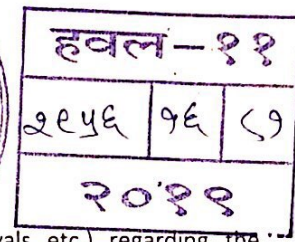 हवल-११
२९५६ १६ ८१
२०१९
etc.) regarding the